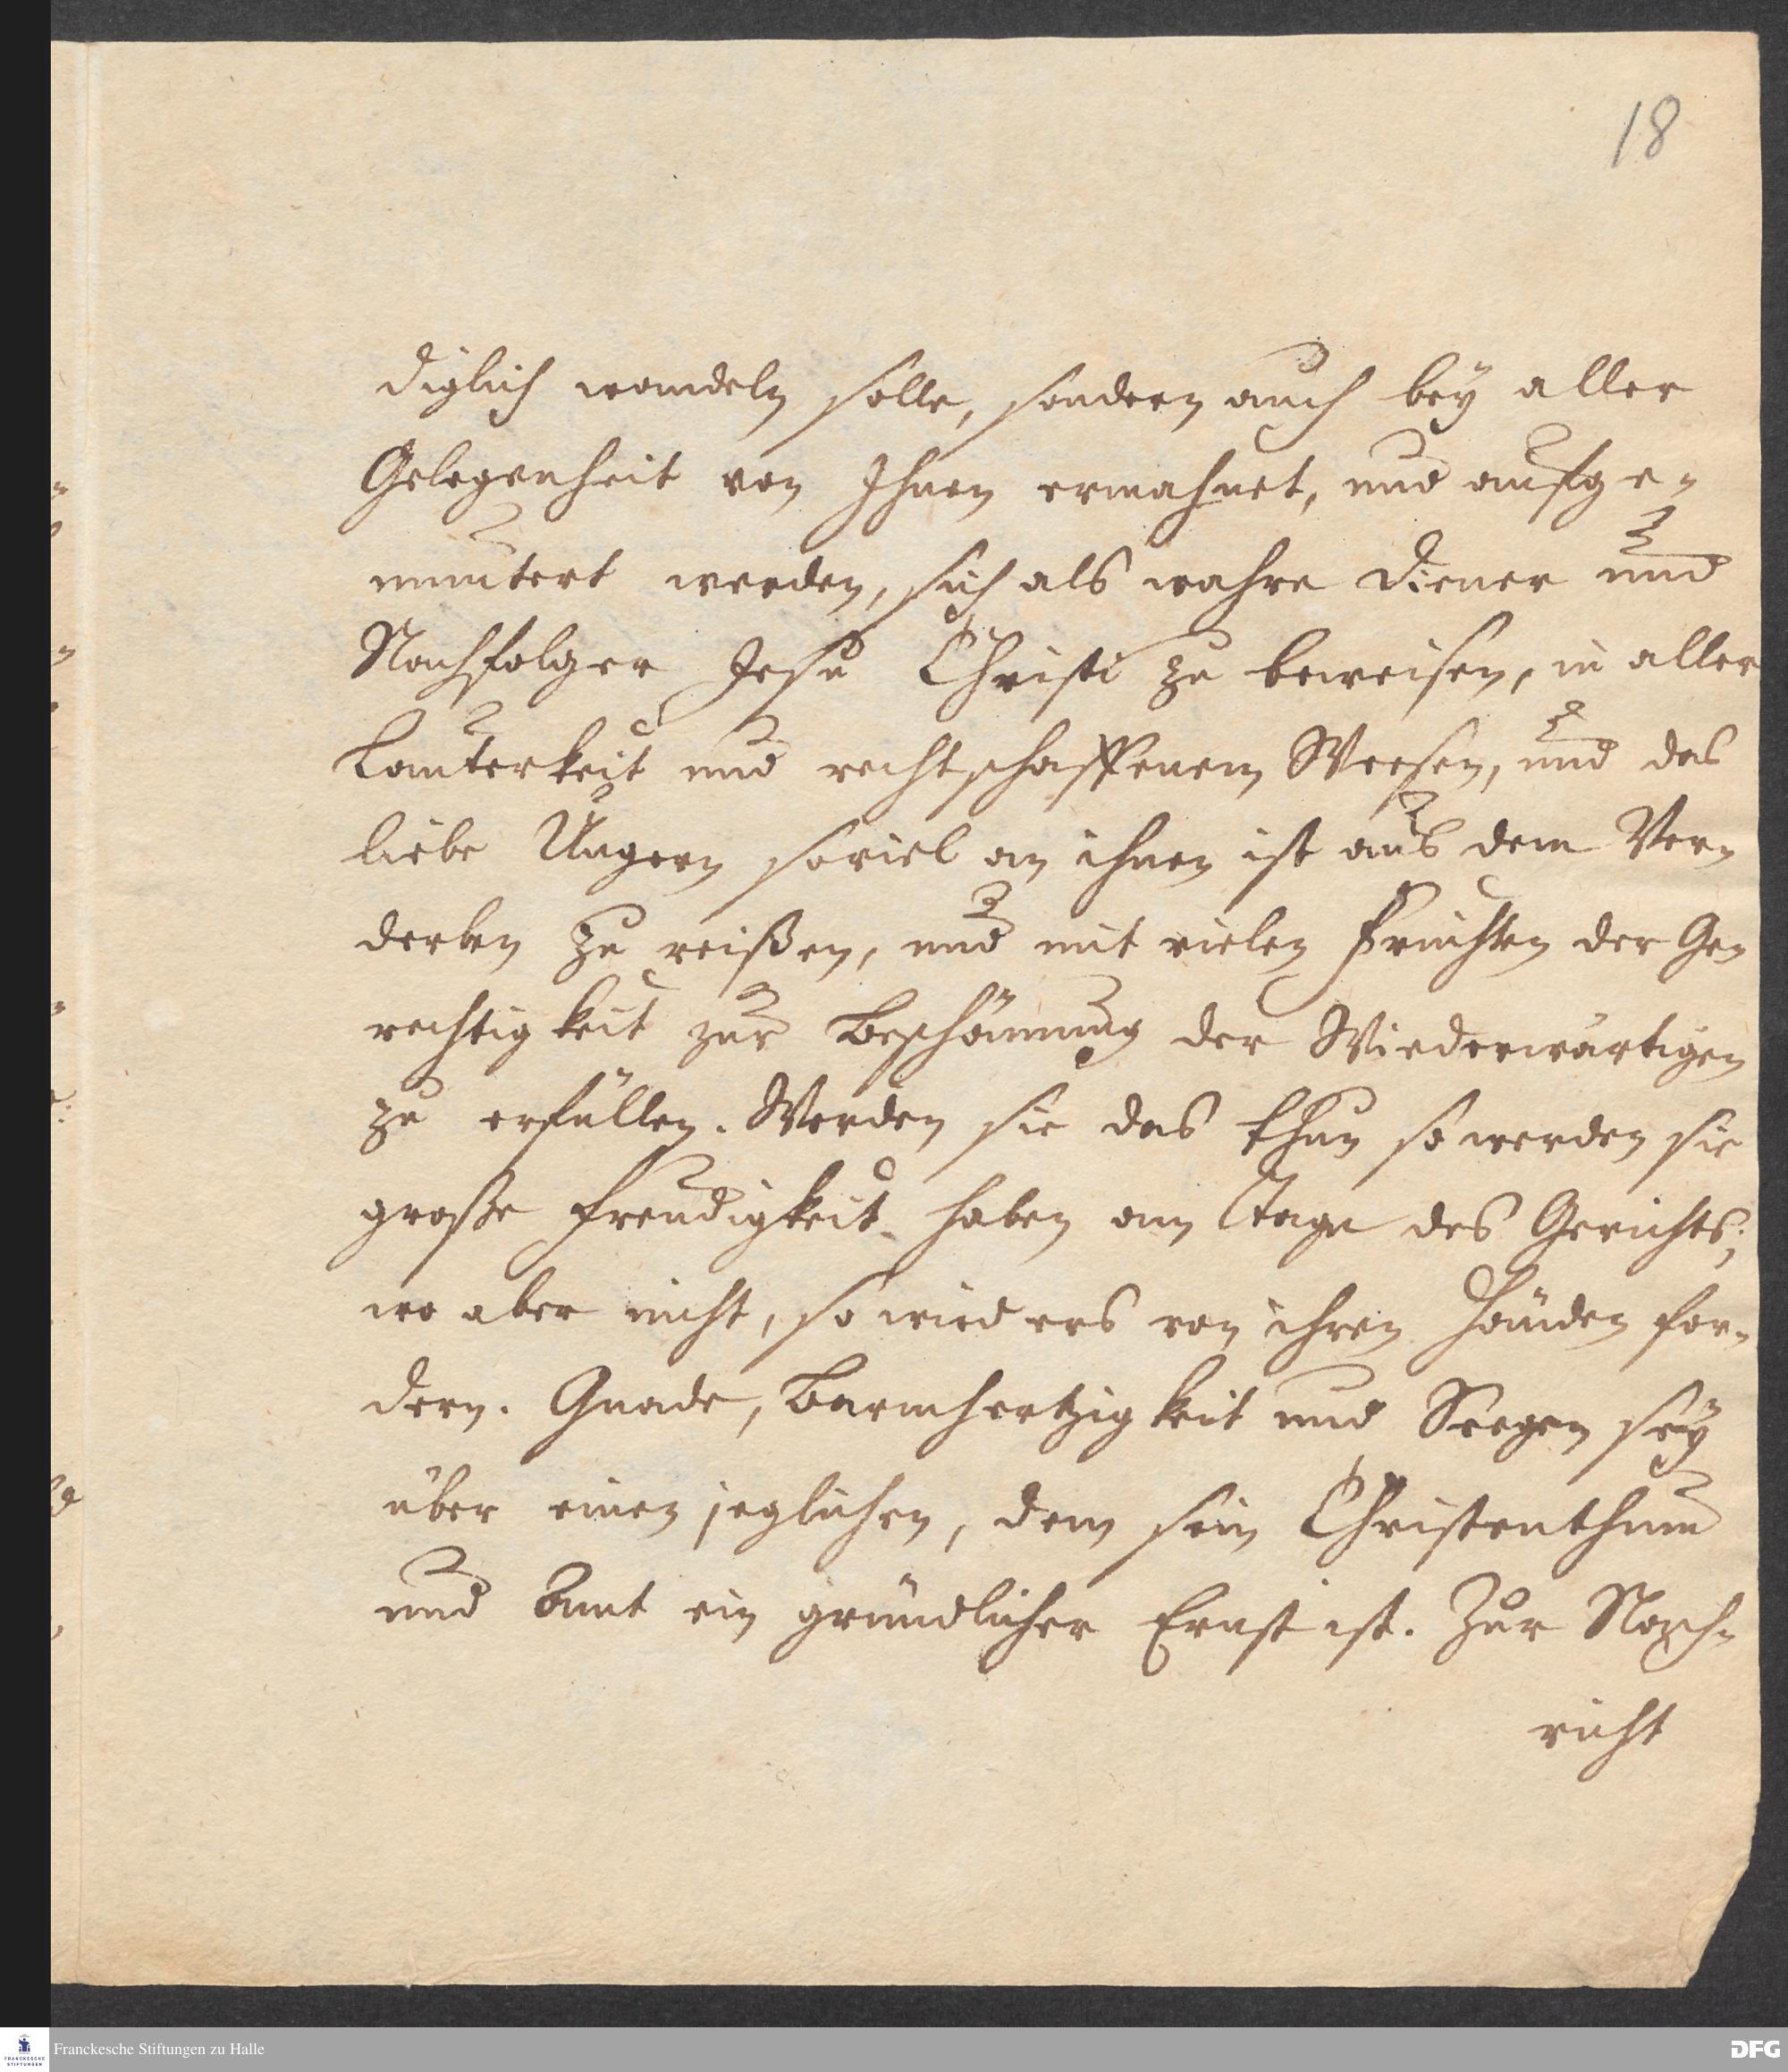 18
diglich wandeln solle, sondern auch bey aller
Gelegenheit von Ihnen ermahnet, und aufge-
muntert werden, sich als wahre Diener und
Nachfolger Jesu Christi zu beweisen, in aller
Lauterkeit und rechtschaffenem Weesen, und das
liebe Ungern soviel an ihnen ist aus dem Ver-
derben zu reißen, und mit vielen Früchten der Ge-
rechtigkeit zur Beschämung der Wiederwärtigen
zu erfüllen. Werden sie das thun so werden sie
große Freudigkeit haben am Tage des Gerichts;
wo aber nicht, so wird ers von ihren Händen for-
dern. Gnade, Barmhertzigkeit und Seegen sey
über einen jeglichen, dem sein Christenthum
und Amt ein gründlicher Ernst ist. Zur Nach-
richt
Franckesche Stiftungen zu Halle
DFG